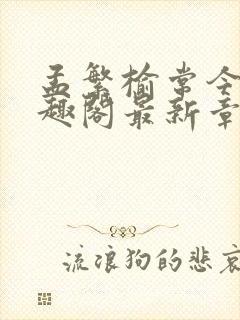 孟繁榆常今
趣阁最新章
流浪狗的悲哀